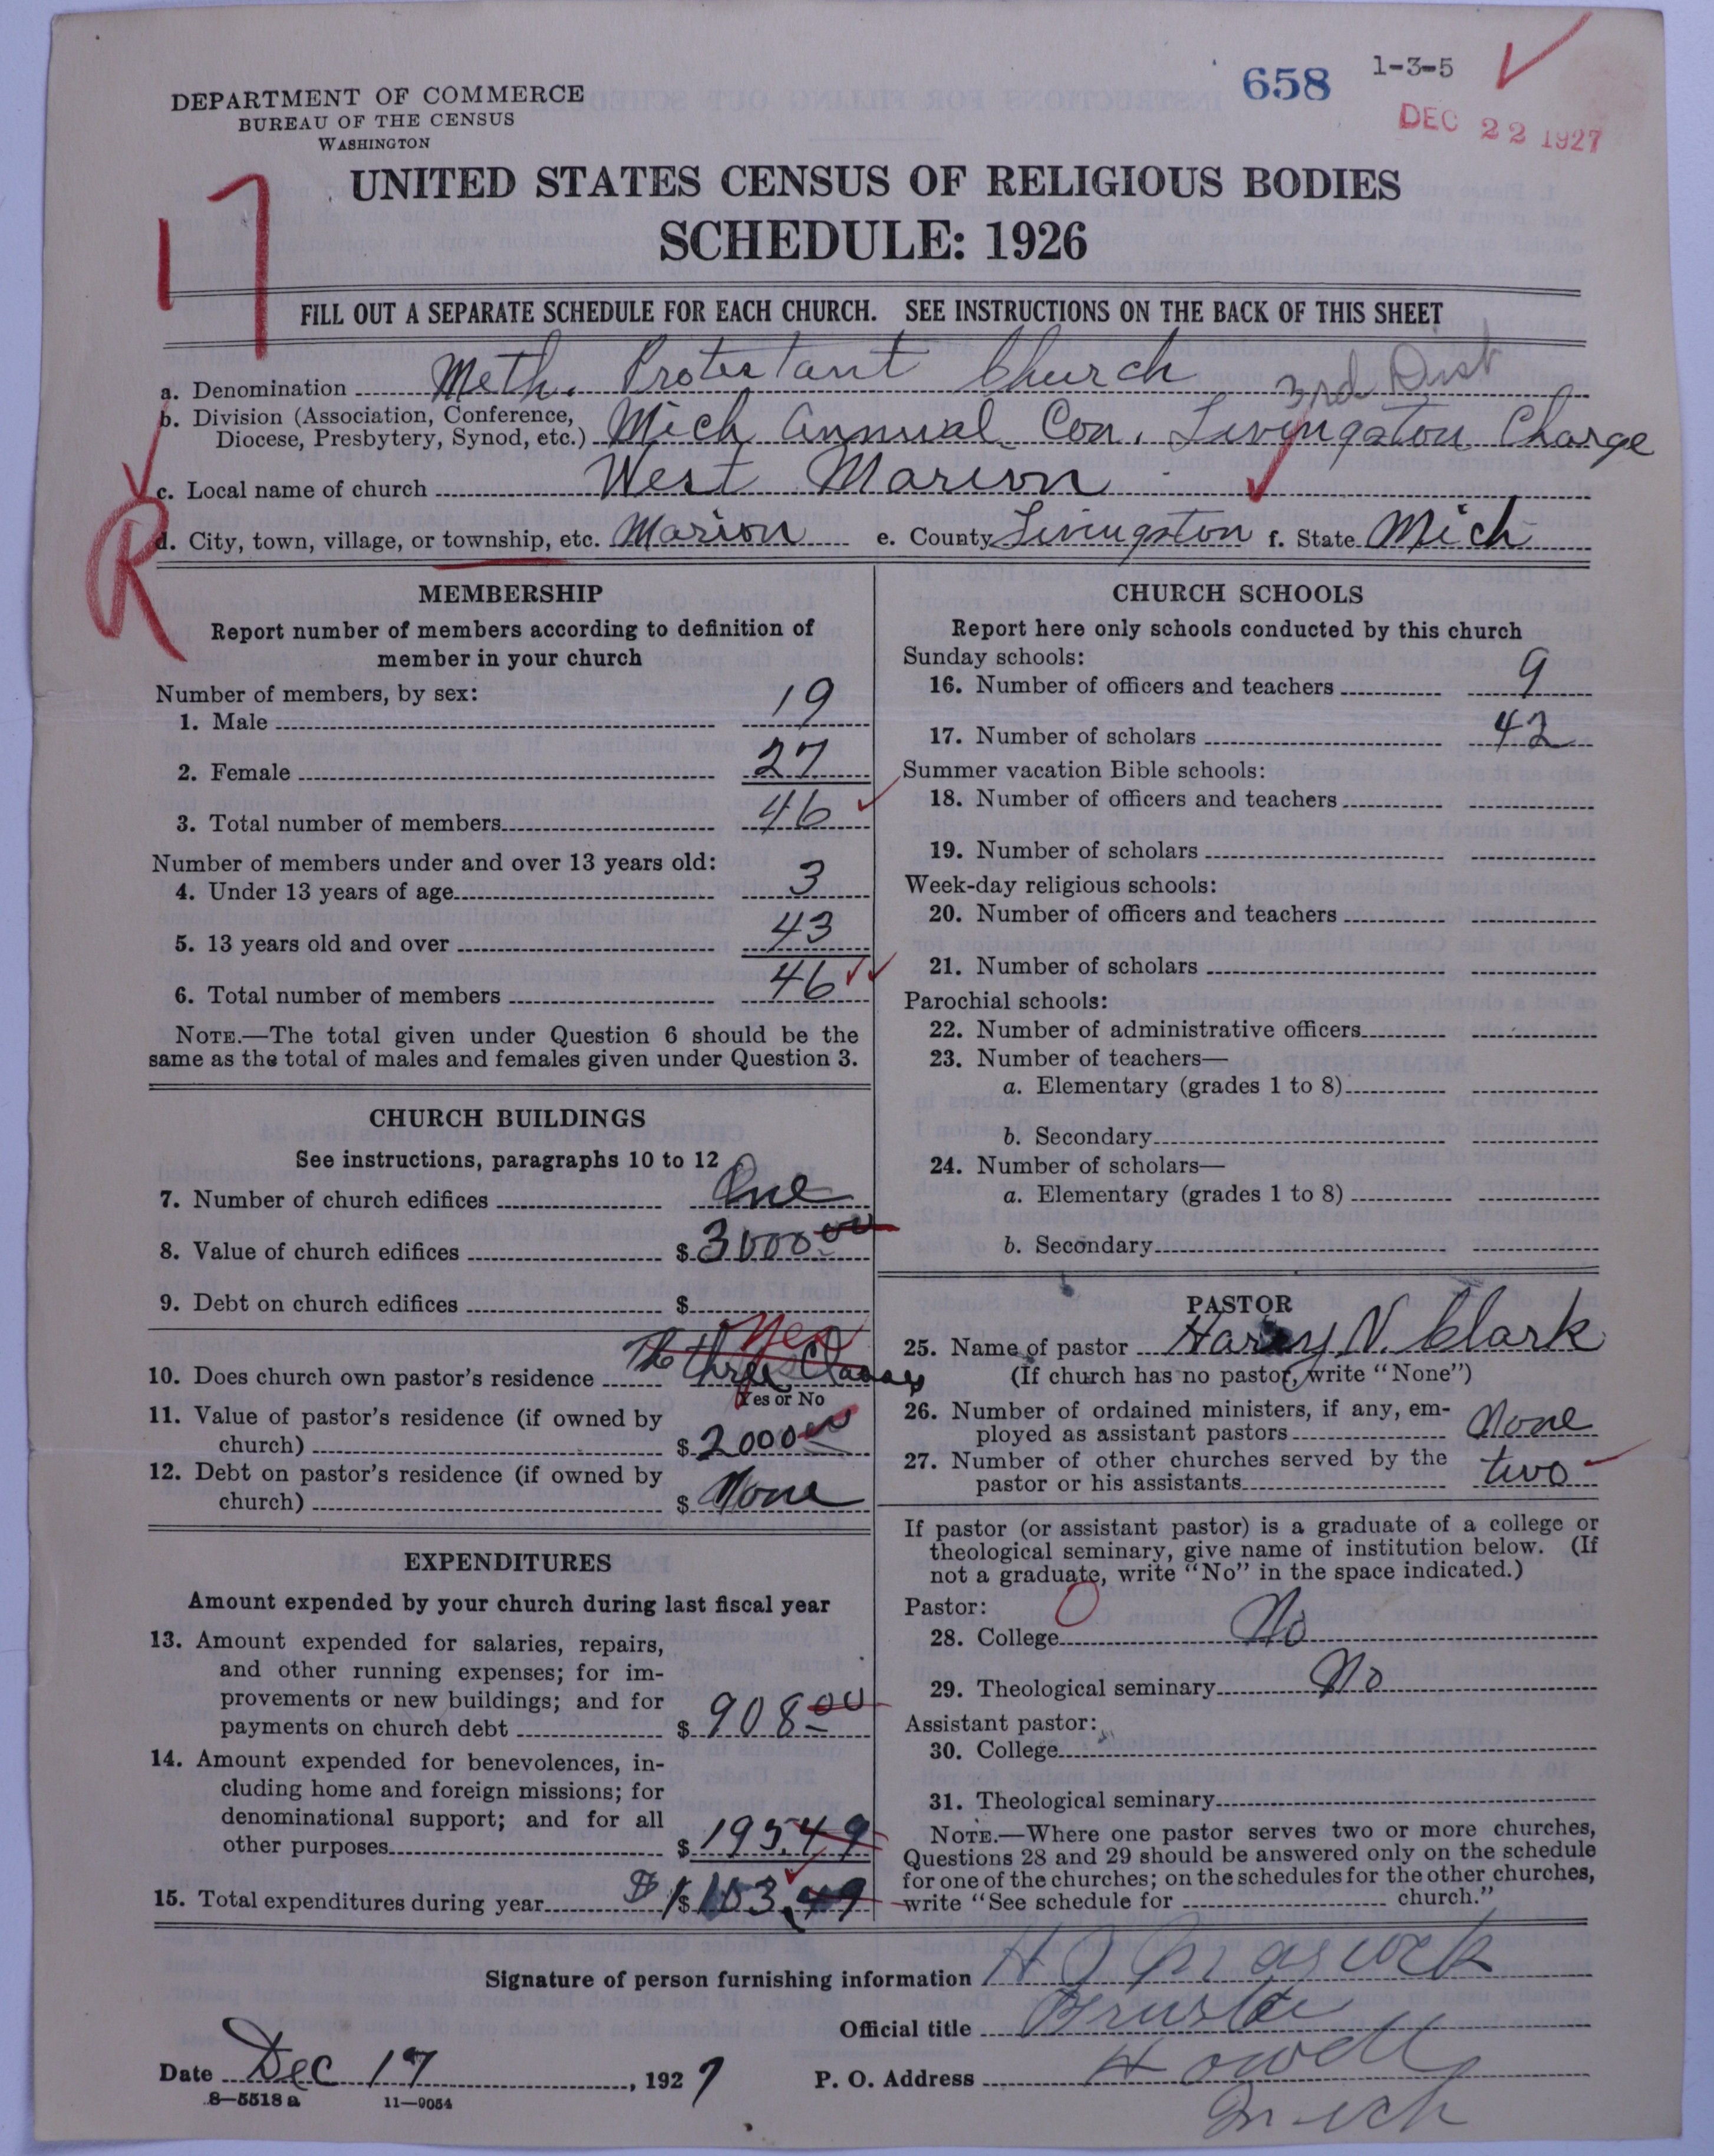 658 1-3-5
DEC 22 1927
DEPARTMENT OF COMMERCE
BUREAU OF THE CENSUS
WASHINGTON
17
UNITED STATES CENSUS OF RELIGIOUS BODIES
SCHEDULE: 1926
FILL OUT A SEPARATE SCHEDULE FOR EACH CHURCH. SEE INSTRUCTIONS ON THE BACK OF THIS SHEET
a. Denomination Meth. Protestant Church 3rd Dist
b. Division (Association, Conference,
Diocese, Presbytery, Synod, etc.) Mich Annual Con. Livingston Charge
c. Local name of church West Marion
R
d. City, town, village, or township, etc. Marion e. County Livingston f. State Mich
MEMBERSHIP
Report number of members according to definition of
member in your church
Number of members, by sex:
1. Male 19
2. Female 27
3. Total number of members 46
Number of members under and over 13 years old:
4. Under 13 years of age 3
5. 13 years old and over 43
6. Total number of members 46
NOTE.—The total given under Question 6 should be the
same as the total of males and females given under Question 3.
CHURCH BUILDINGS
See instructions, paragraphs 10 to 12
7. Number of church edifices One
8. Value of church edifices $ 3000 00
9. Debt on church edifices $
Yes
10. Does church own pastor's residence The three Classes
Yes or No
11. Value of pastor's residence (if owned by
church) $ 2000 00
12. Debt on pastor's residence (if owned by
church) $ None
EXPENDITURES
Amount expended by your church during last fiscal year
13. Amount expended for salaries, repairs,
and other running expenses; for im-
provements or new buildings; and for
payments on church debt $ 908 00
14. Amount expended for benevolences, in-
cluding home and foreign missions; for
denominational support; and for all
other purposes $ 195.49
15. Total expenditures during year $ 1$103.49
CHURCH SCHOOLS
Report here only schools conducted by this church
Sunday schools:
16. Number of officers and teachers 9
17. Number of scholars 42
Summer vacation Bible schools:
18. Number of officers and teachers
19. Number of scholars
Week-day religious schools:
20. Number of officers and teachers
21. Number of scholars
Parochial schools:
22. Number of administrative officers
23. Number of teachers—
a. Elementary (grades 1 to 8)
b. Secondary
24. Number of scholars—
a. Elementary (grades 1 to 8)
b. Secondary
PASTOR
25. Name of pastor Harry N. Clark
(If church has no pastor, write "None")
26. Number of ordained ministers, if any, em-
ployed as assistant pastors None
27. Number of other churches served by the
pastor or his assistants two
If pastor (or assistant pastor) is a graduate of a college or
theological seminary, give name of institution below. (If
not a graduate, write "No" in the space indicated.)
Pastor: 0
28. College No
29. Theological seminary No
Assistant pastor:
30. College
31. Theological seminary
NOTE.—Where one pastor serves two or more churches,
Questions 28 and 29 should be answered only on the schedule
for one of the churches; on the schedules for the other churches,
write "See schedule for church."
Signature of person furnishing information H
Official title Trustee
Date Dec 17, 1927 P. O. Address Howell
8—5518 a 11—9054 Mich